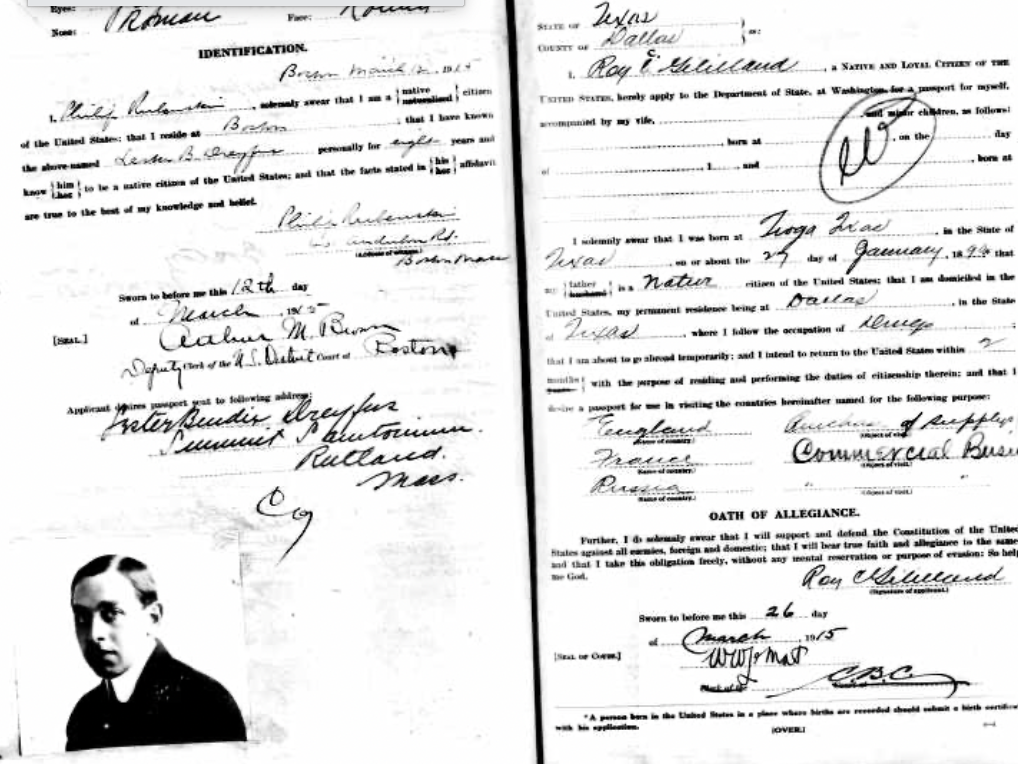 Eyes:
Face: Round
Nose: Roman
IDENTIFICATION.
Boston March 12, 1915
I, Philip Rubenstein, solemnly swear that I am a {native naturalized} citizen
of the United States; that I reside at Boston; that I have known
the above-named Lester B. Dreyfus personally for eight years and
know {him her} to be a native citizen of the United States; and that the facts stated in {his her} affidavit
are true to the best of my knowledge and belief.
Philip Rubenstein
Rd.
Boston Mass
Sworn to before me this 12th day
of March, 1915
[SEAL.]
Arthur M. Brown
Deputy Clerk of the U.S. District Court at Boston
Applicant desires passport sent to following address:
Lester Bendix Dreyfus
Summit
Rutland.
Mass.
STATE OF Texas
COUNTY OF Dallas } ss:
I, Roy C. Gililland, a NATIVE AND LOYAL CITIZEN OF THE
UNITED STATES, hereby apply to the Department of State, at Washington, for a passport for myself,
accompanied by my wife, and minor children, as follows:
born at , on the day
of , 1 , and , born at
I solemnly swear that I was born at Tioga Texas, in the State of
Texas, on or about the 27 day of January, 189 that
my {father husband} is a native citizen of the United States; that I am domiciled in the
United States, my permanent residence being at Dallas, in the State
of Texas, where I follow the occupation of Drugs
that I am about to go abroad temporarily; and I intend to return to the United States within 2
{months years} with the purpose of residing and performing the duties of citizenship therein; and that I
desire a passport for use in visiting the countries hereinafter named for the following purpose:
England of supplys
(Name of country.) (Object of visit.)
France Commercial Busi
(Name of country.) (Object of visit.)
Russia " "
(Name of country.) (Object of visit.)
OATH OF ALLEGIANCE.
Further, I do solemnly swear that I will support and defend the Constitution of the United
States against all enemies, foreign and domestic; that I will bear true faith and allegiance to the same
and that I take this obligation freely, without any mental reservation or purpose of evasion: So help
me God.
Roy C Gililland
(Signature of applicant.)
Sworn to before me this 26 day
of March, 1915
[SEAL OF COURT.]
*A person born in the United States in a place where births are recorded should submit a birth certific
with his application.
[OVER.]